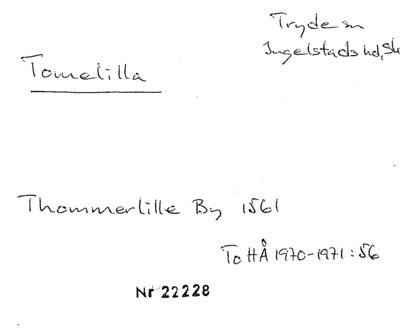 Tryde sn
Ingelstads hd, Sk
Tomelilla
Thommerlille By 1561
ToHÅ 1970-1971:56
Nr 22228